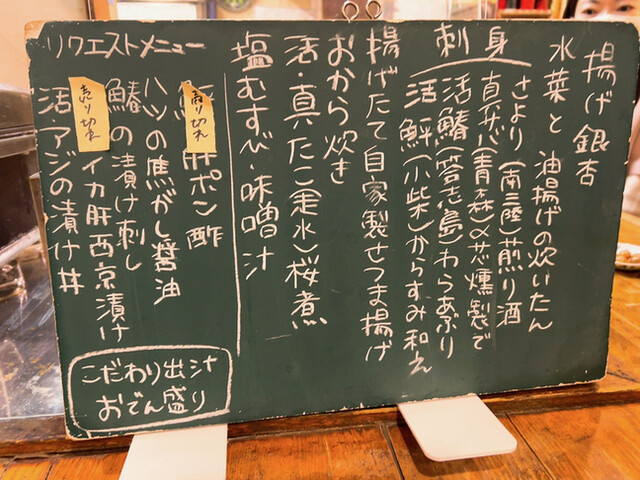 揚げ銀杏
水菜と油揚げの炊いたん
刺身
さより(南三陸)煎り酒
真サバ(青森)〆芯燻製で
活鰆(答志島)わらあぶり
活鮃(小柴)からすみ和え
揚げたて自家製さつま揚げ
おから炊き
活・真だこ(走水)桜煮
塩むすび・味噌汁
リクエストメニュー
売り切れ
肝ポン酢
ハツの焦がし醤油
鰆の漬け刺し
売り切れ
イカ肝西京漬け
活・アジの漬け丼
こだわり出汁
おでん盛り